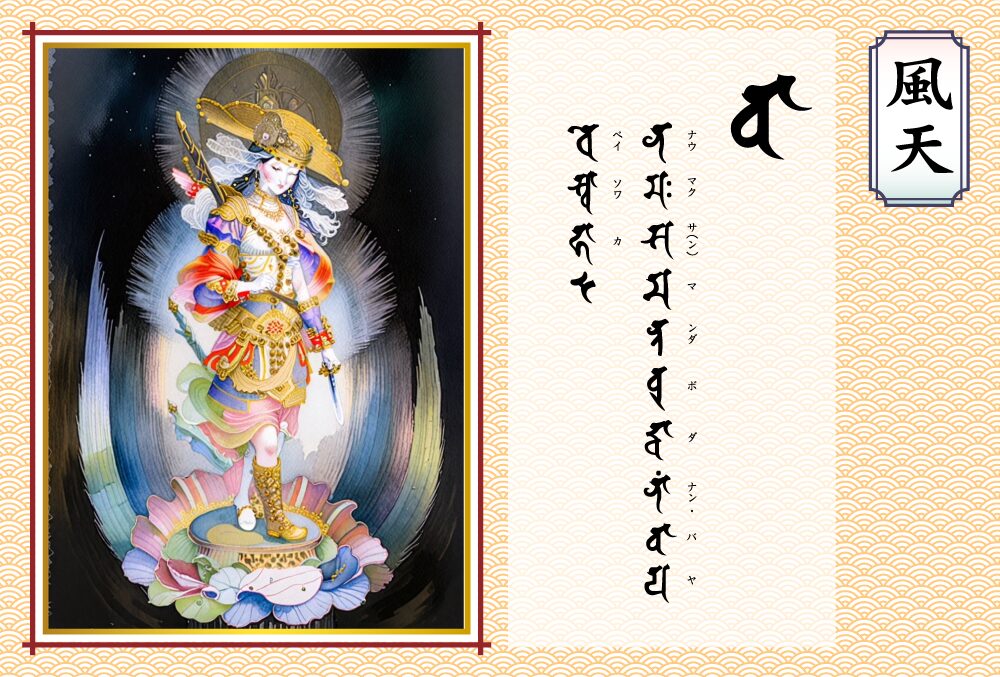 風天
𑖪𑖯
ナウ マク サ(ン) マ ンダ ボ ダ ナン・ バ ヤ
𑖡𑖦𑖾𑖭𑖦𑖡𑖿𑖝𑖤𑖲𑖟𑖿𑖠𑖯𑖡𑖯𑖽𑖪𑖯𑖧
ベイ ソワ カ
𑖪𑖸𑖭𑖿𑖪𑖯𑖮𑖯